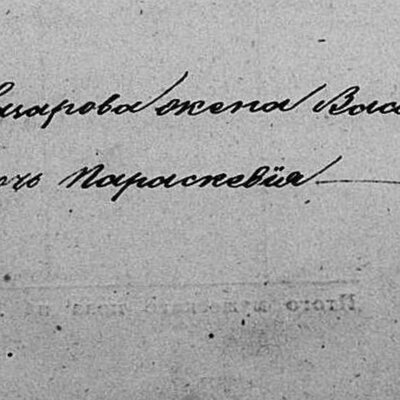 царова жена Вас
очь Параскевія